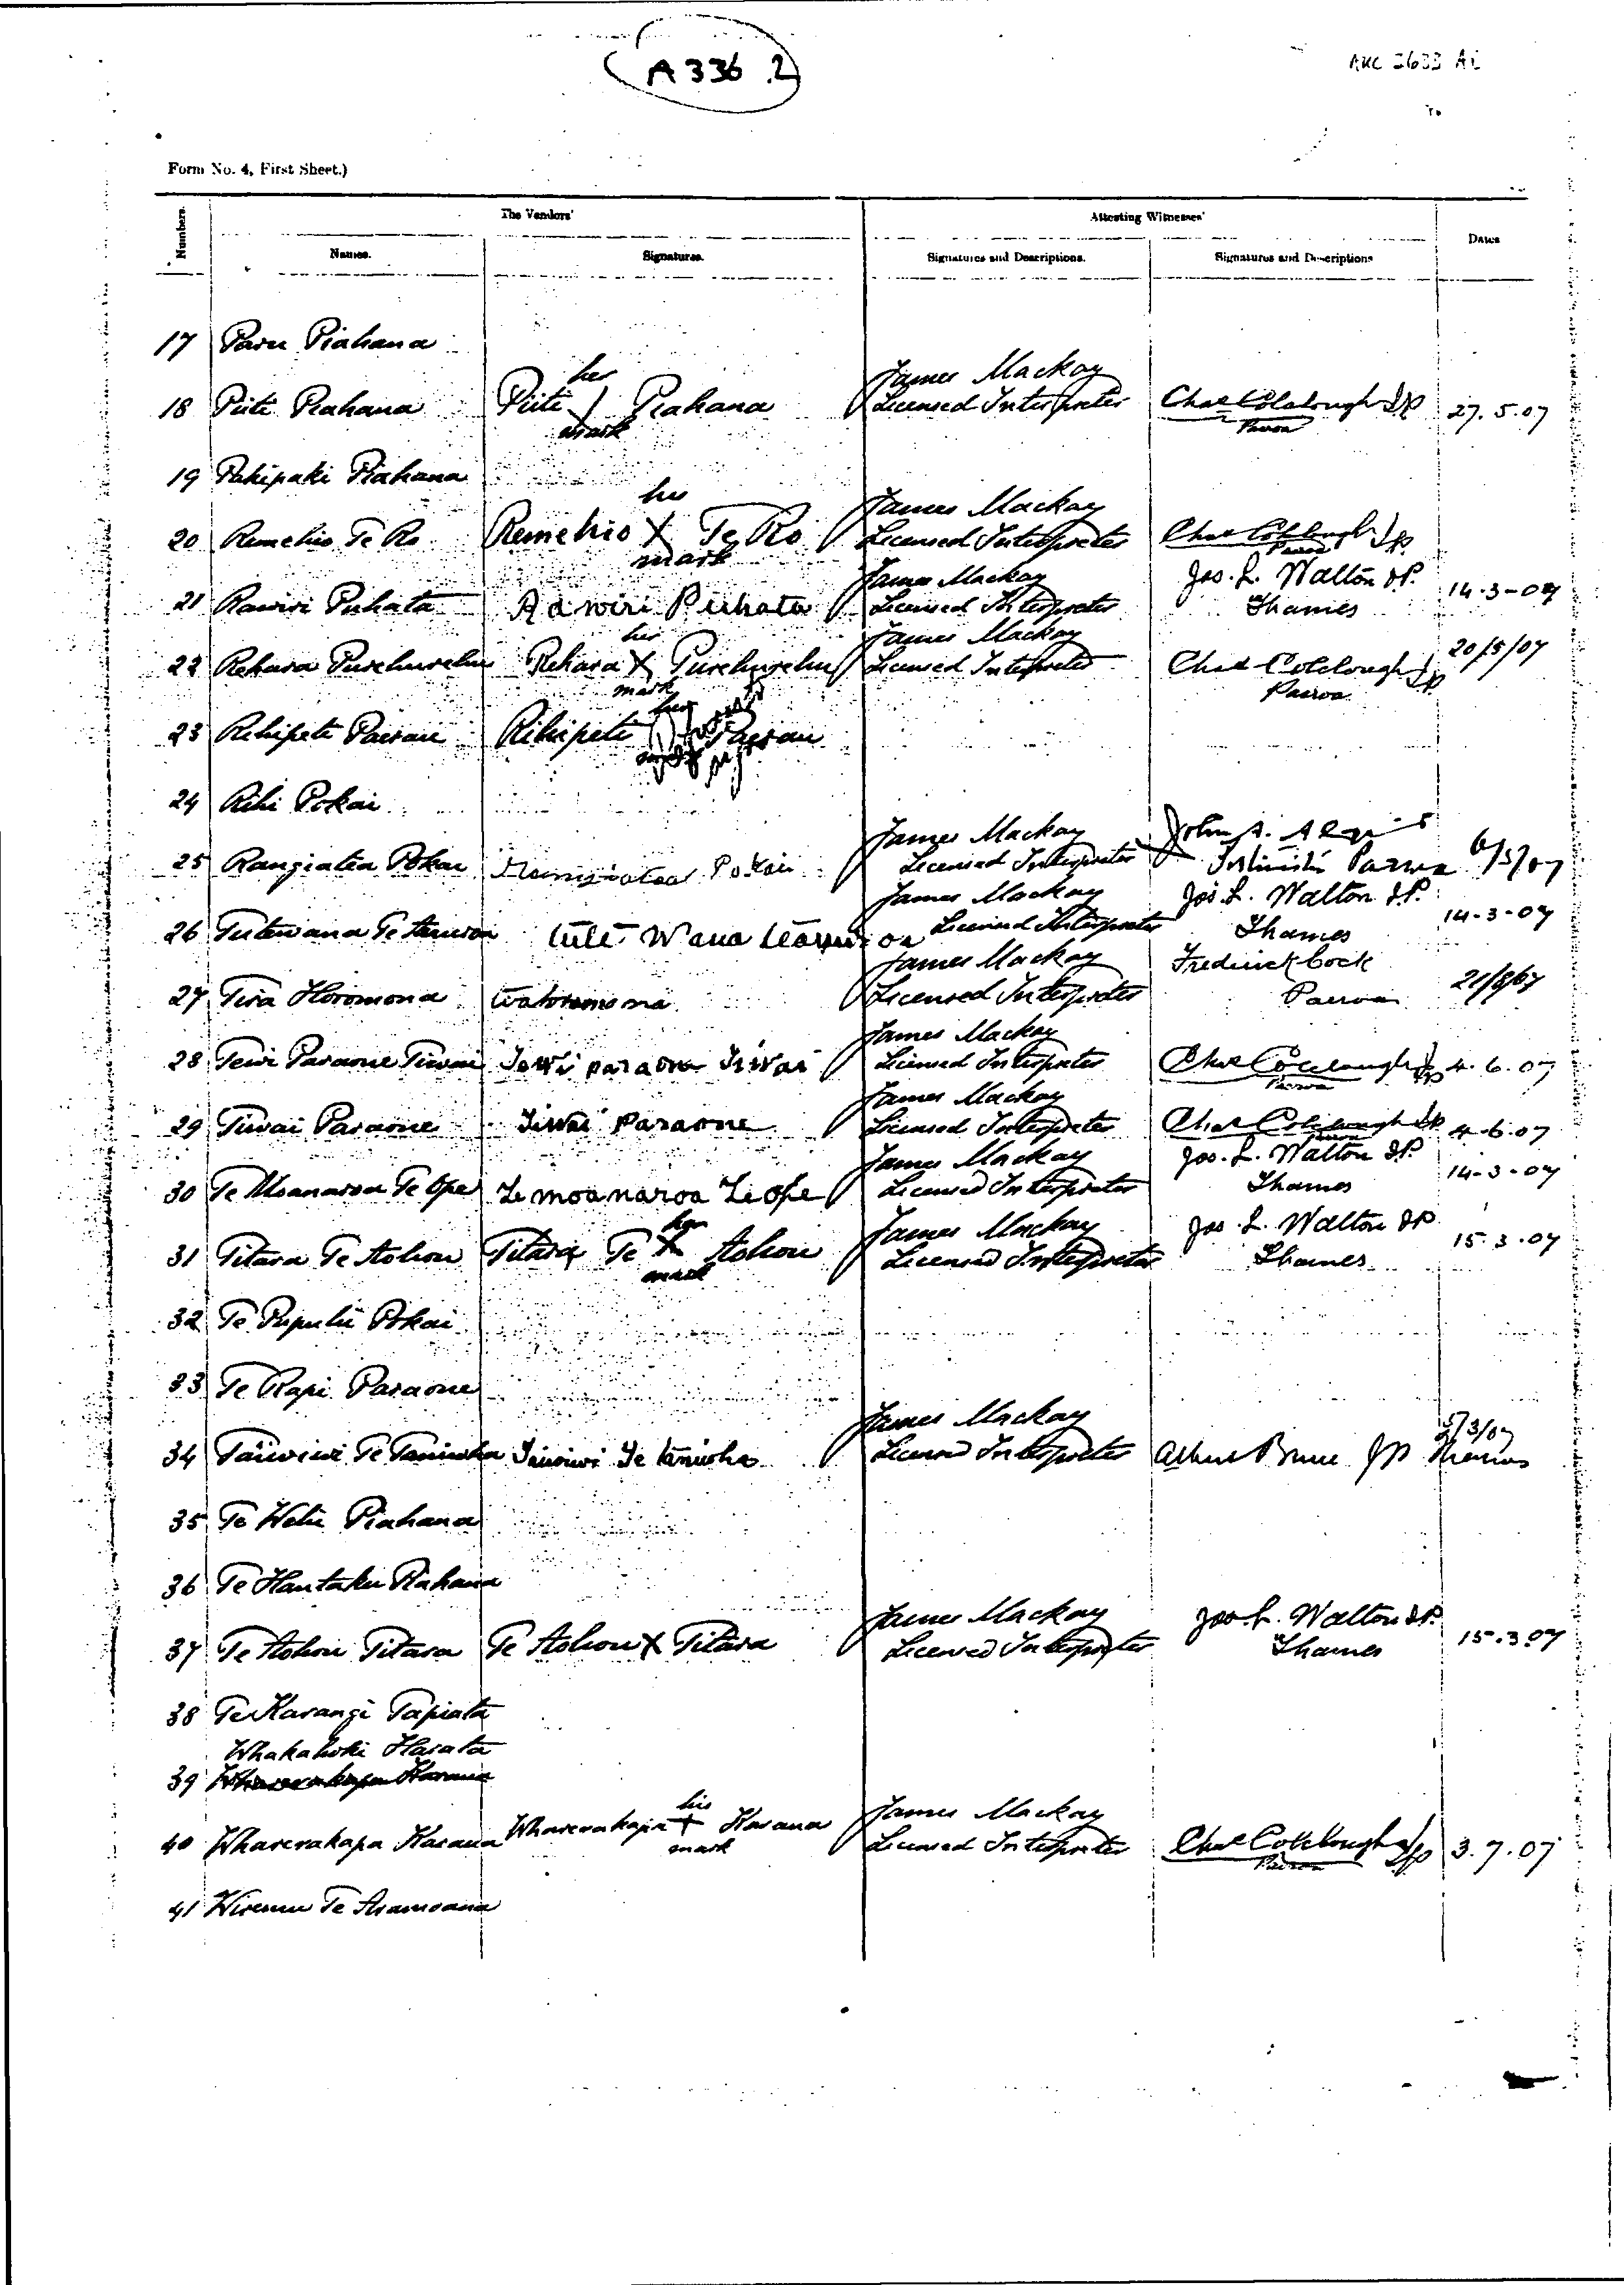 A 336 .2
Form No. 4, First Sheet.)
Numbers.
The Vendors'
Attesting Witnesses'
Dates
Names.
Signatures.
Signatures and Descriptions.
Signatures and Descriptions
17 Paru Piahana
James Mackay
her
18 Piiti Piahana Piiti Piahana Licensed Interpreter Chas Colclough JP 27.5.07
mark Paeroa
19 Pakipaki Piahana
James Mackay
20 Remehio Te Ro Remehio X Te Ro Licensed Interpreter Chas Colclough JP
mark Paeroa
James Mackay Jos. L. Walton J.P.
21 Rawiri Puhata Rawiri Puhata Licensed Interpreter Thames 14-3-07
her James Mackay 20/5/07
22 Rehara Purehurehu Rehara X Purehurehu Licensed Interpreter Chas Colclough JP
mark Paeroa
23 Rihipeti Paerau Rihipeti Paerau
24 Rihi Pokai
James Mackay John A.
25 Rangiatea Pokai Pokai Licensed Interpreter Paeroa
James Mackay Jos. L. Walton J.P.
26 Licensed Interpreter Thames 14-3-07
James Mackay Frederick Cock
27 Tira Horomona Licensed Interpreter Paeroa
James Mackay
28 Tewi Paraone Tiwai Tewi paraone Tiwai Licensed Interpreter Chas Colclough JP 4.6.07
Paeroa
James Mackay
29 Tiwai Paraone Tiwai Paraone Licensed Interpreter Chas Colclough JP 4.6.07
Paeroa
James Mackay Jos. L. Walton J.P.
30 Te Moanaroa Te Ope Te moanaroa Te ope Licensed Interpreter Thames 14-3-07
James Mackay Jos. L. Walton J.P.
31 Titara Te Aohou Titara Te X Aohou Licensed Interpreter Thames 15.3.07
mark
32 Te Puputu Pokai
33 Te Rapi Paraone
James Mackay
34 Taiwiwi Te Taniwha Taiwiwi Te taniwha Licensed Interpreter Albert Bruce JP Thames
35 Te Wetu Piahana
36 Te Hautaku Piahana
James Mackay Jos. L. Walton J.P.
37 Te Aohou Titara Te Aohou X Titara Licensed Interpreter Thames 15.3.07
38 Te Karangi Tapiata
Whakahoki Harata
39
his James Mackay
40 Wharerakapa Karaua Wharerakapa + Karaua Licensed Interpreter Chas Colclough JP 3.7.07
mark Paeroa
41 Wiremu Te Aramoana